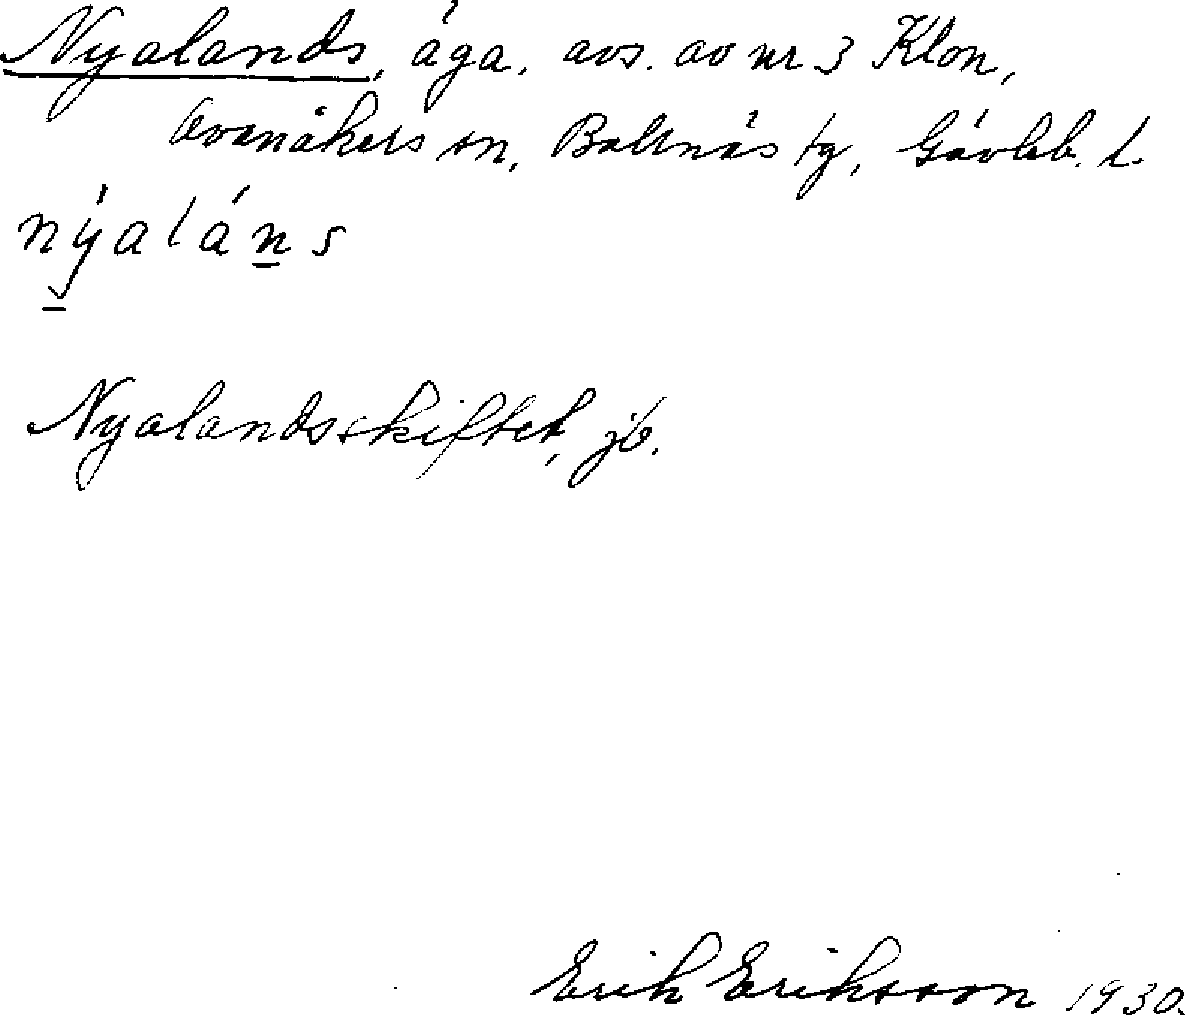 Nyalands, äga, avs. av nr 3 Klon,
Ovanåkers sn, Bollnäs tg, Gävleb. l.
nýaláns
Nyalandsskiftet, jb.
Erik Eriksson 1930.